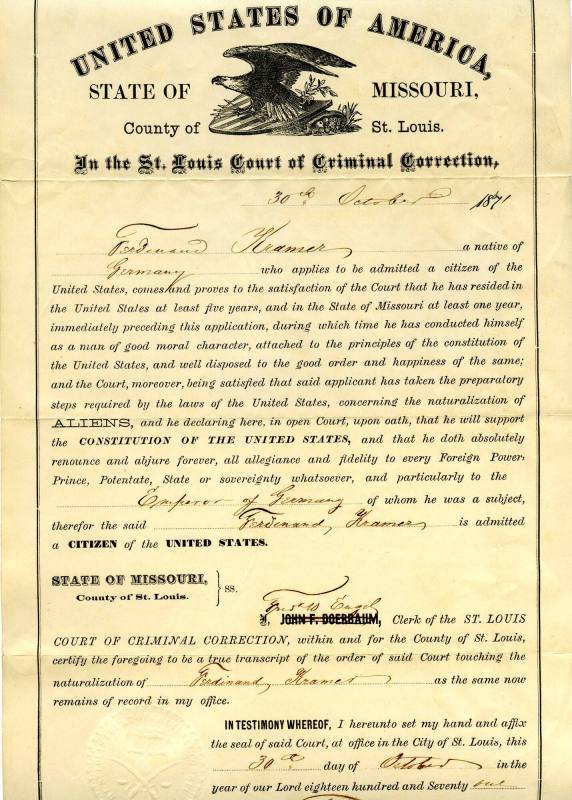 UNITED STATES OF AMERICA,
STATE OF MISSOURI,
County of St. Louis.
In the St. Louis Court of Criminal Correction,
30th October 1871
Ferdinand Kramer a native of
Germany who applies to be admitted a citizen of the
United States, comes and proves to the satisfaction of the Court that he has resided in
the United States at least five years, and in the State of Missouri at least one year,
immediately preceding this application, during which time he has conducted himself
as a man of good moral character, attached to the principles of the constitution of
the United States, and well disposed to the good order and happiness of the same;
and the Court, moreover, being satisfied that said applicant has taken the preparatory
steps required by the laws of the United States, concerning the naturalization of
ALIENS, and he declaring here, in open Court, upon oath, that he will support
the CONSTITUTION OF THE UNITED STATES, and that he doth absolutely
renounce and abjure forever, all allegiance and fidelity to every Foreign Power,
Prince, Potentate, State or sovereignty whatsoever, and particularly to the
Emperor of Germany of whom he was a subject,
therefor the said Ferdinand Kramer is admitted
a CITIZEN of the UNITED STATES.
STATE OF MISSOURI,
County of St. Louis. } ss.
Fred W Engel
I, JOHN F. DOERBAUM, Clerk of the ST. LOUIS
COURT OF CRIMINAL CORRECTION, within and for the County of St. Louis,
certify the foregoing to be a true transcript of the order of said Court touching the
naturalization of Ferdinand Kramer as the same now
remains of record in my office.
IN TESTIMONY WHEREOF, I hereunto set my hand and affix
the seal of said Court, at office in the City of St. Louis, this
30th day of October in the
year of our Lord eighteen hundred and Seventy one